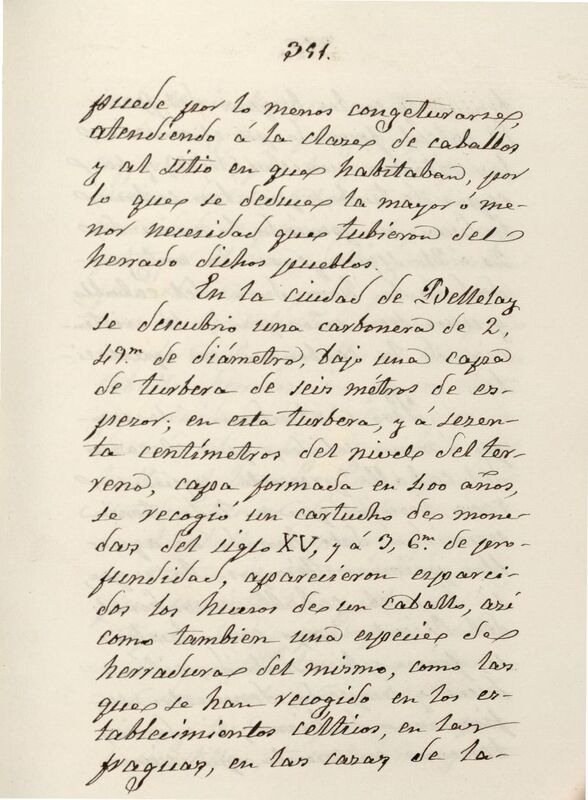 391.
puede por lo menos congeturarse,
atendiendo á la clase de caballos
y al sitio en que habitaban, por
lo que se deduce la mayor ó me-
nor necesidad que tubieron del
herrado dichos pueblos.
En la ciudad de Vellelay
se descubrio una carbonera de 2,
49.m de diámetro, bajo una capa
de turbera de seis métros de es-
pesor; en esta turbera, y á sesen-
ta centímetros del nivel del ter-
reno, capa formada en 400 años,
se recogió un cartucho de mone-
das del siglo XV, y á 3, 6.m de pro-
fundidad, aparecieron esparci-
dos los huesos de un caballo, asi
como tambien una especie de
herradura del mismo, como las
que se han recogido en los es-
tablecimientos célticos, en las
fraguas, en las casas de la-